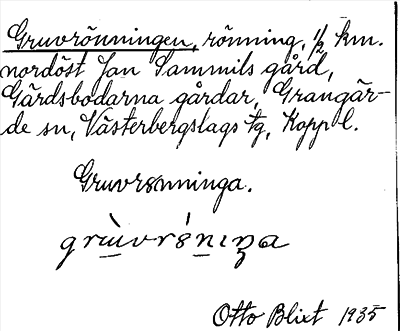 Gruvrönningen, rönning, 1/2 km.
nordöst Jan Sammils gård,
Gärdsbodarna gårdar, Grangär-
de sn, Västerbergslags tg, Koppl.
Gruvrönninga.
Otto Blixt 1935